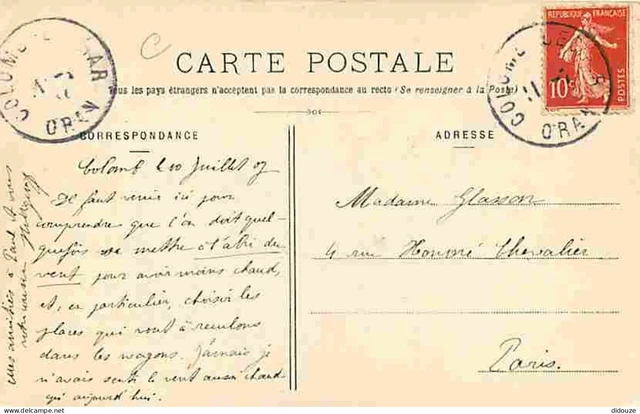 COLOMB-BECHAR
ORAN
C
CARTE POSTALE
Tous les pays étrangers n'acceptent pas la correspondance au recto (Se renseigner à la Poste)
REPUBLIQUE FRANÇAISE
10c
POSTES
COLOMB-BECHAR
ORAN
CORRESPONDANCE
Colomb le 10 Juillet 07
Il faut venir ici pour
comprendre que l'on doit quel-
quefois se mettre à l'abri du
vent pour avoir moins chaud,
et, en particulier, choisir les
places qui vont à reculons
dans les wagons. Jamais je
n'avais senti le vent aussi chaud
qu'aujourd'hui.
mes amitiés à Paul et vous
votre cousin
ADRESSE
Madame Glasson
4 rue Honoré Chevalier
Paris.
www.delcampe.net
didouze